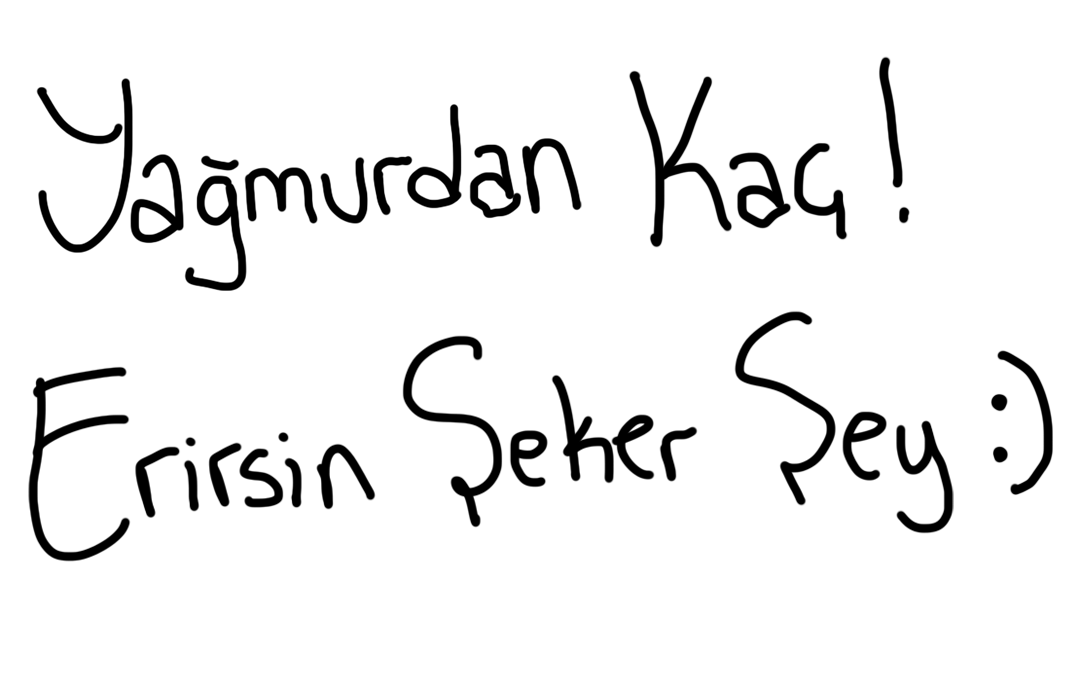 Yağmurdan Kaç!
Erirsin Şeker Şey :)